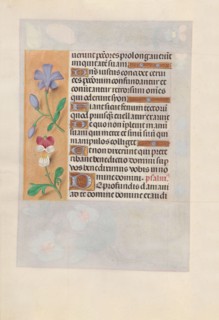 uerunt p̄cc̄ores prolongauerūt
iniquitatē suam
Dn̄s iustus concidet cerui
ces peccatorum confundantur et
conuertantur retrorsum omnes
qui oderunt syon
Fiant sicut fenum tectorū
quod priusq̄ euellatur exaruit
De quo non impleuit manū
suam qui metet et sinū suū qui
manipulos colliget
Et non dixerunt qui prete
ribant benedictio domini sup
vos benediximus vobis in no
mine domini. psalm̄.
De profundis clamaui
ad te domine domine exaudi